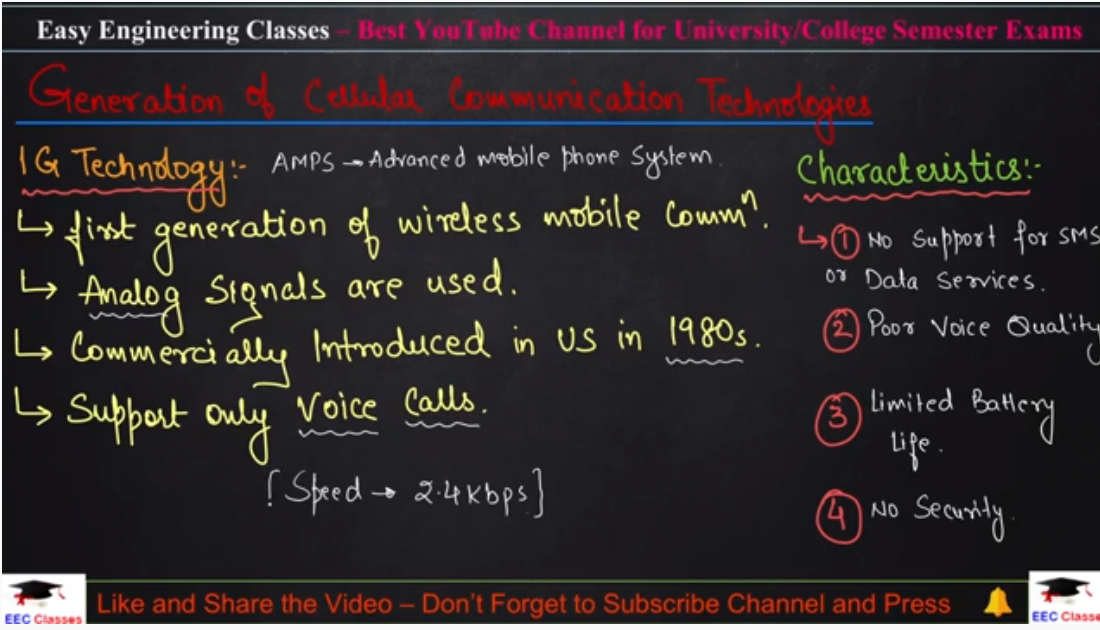 Easy Engineering Classes – Best YouTube Channel for University/College Semester Exams
Generation of Cellular Communication Technologies
1G Technology:- AMPS → Advanced mobile phone System.
↳ first generation of wireless mobile Commⁿ.
↳ Analog Signals are used.
↳ Commercially Introduced in US in 1980s.
↳ Support only Voice Calls.
[Speed → 2.4Kbps]
Characteristics:-
↳ ① No Support for SMS
or Data Services.
② Poor Voice Quality
③ Limited Battery
Life.
④ No Security.
EEC Classes
Like and Share the Video – Don't Forget to Subscribe Channel and Press
EEC Classe